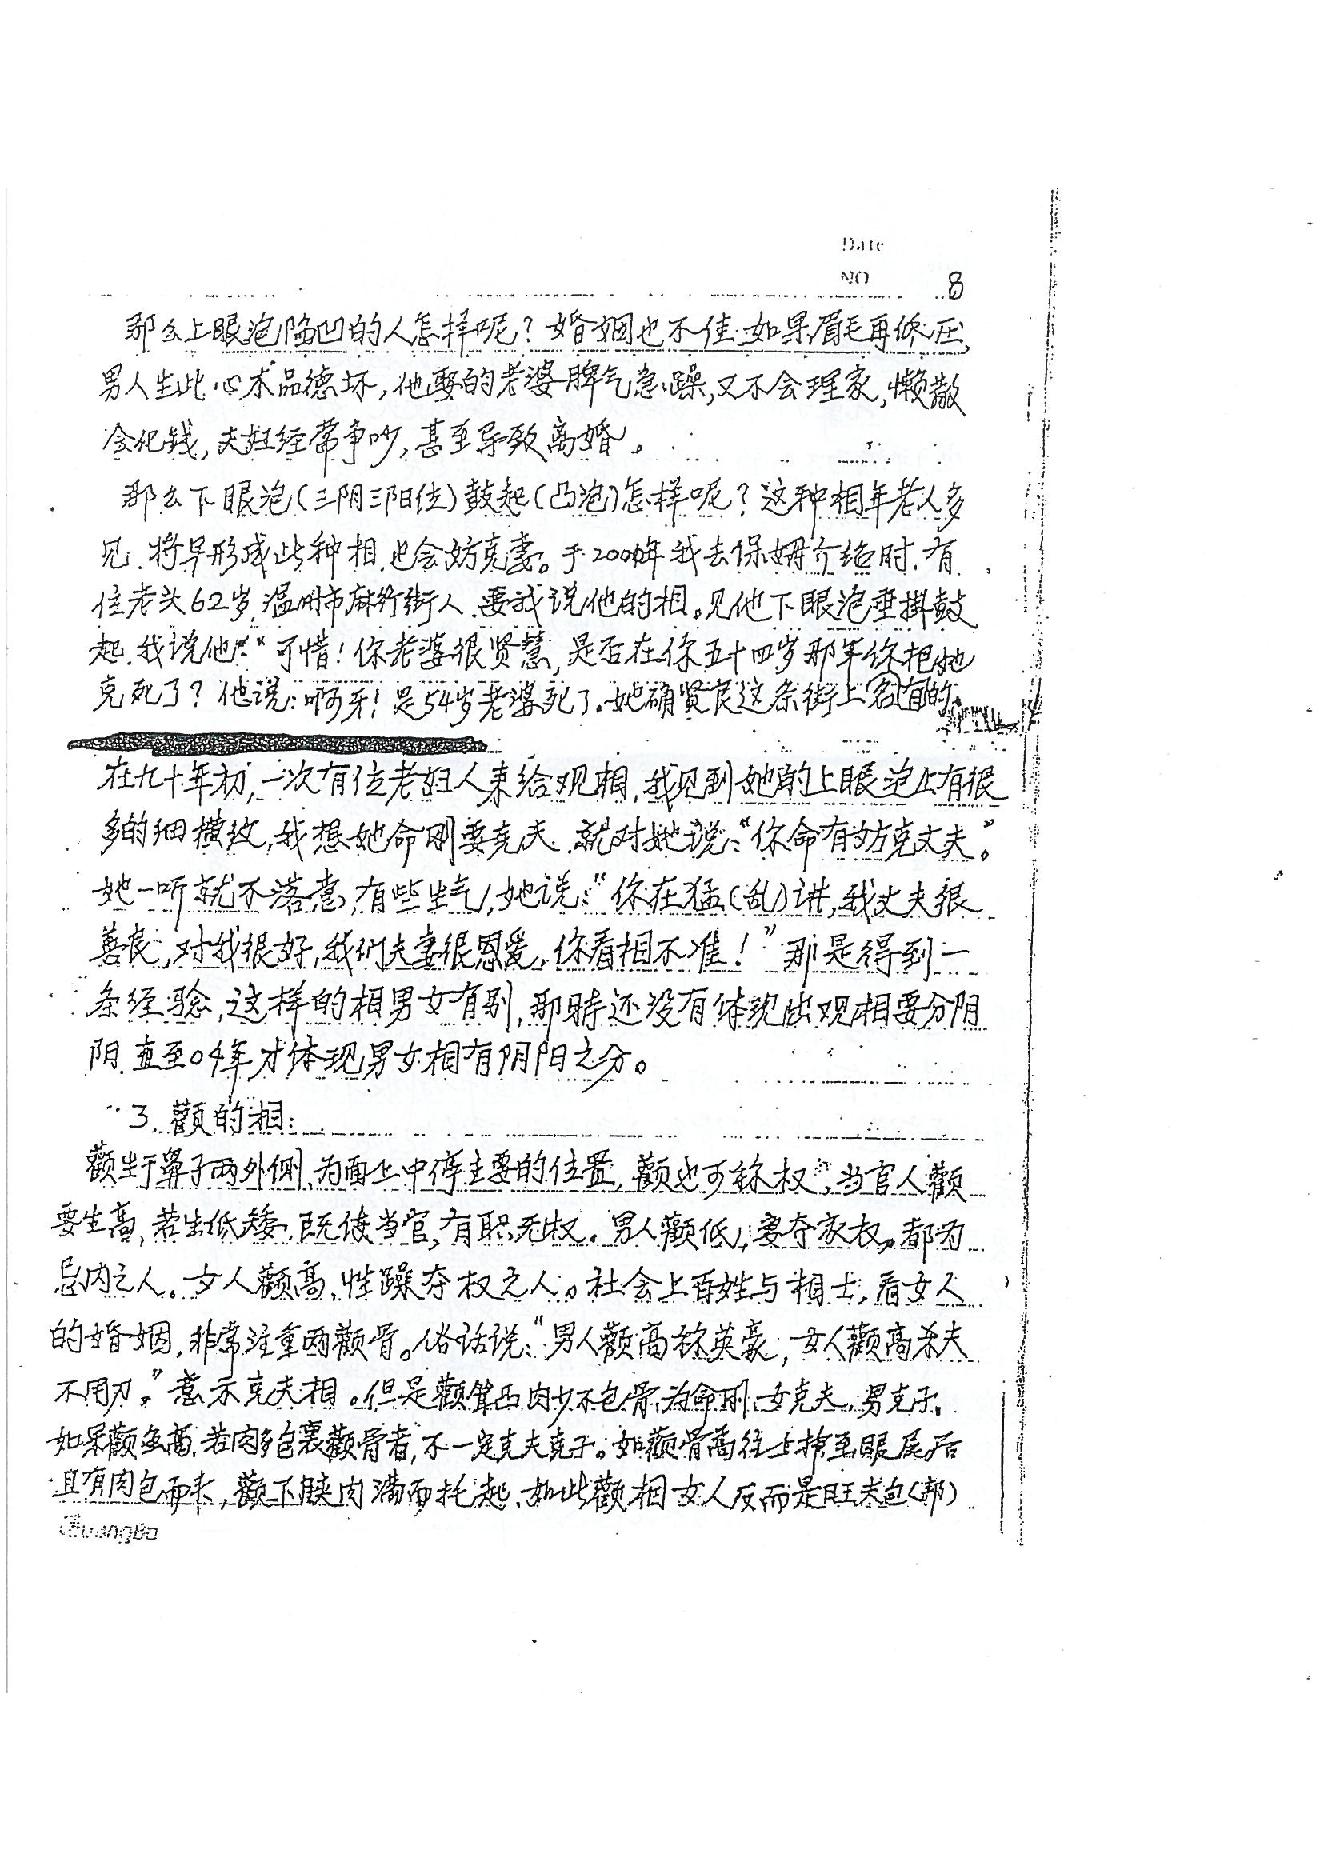 Date
NO 8
那么上眼泡陷凹的人怎样呢？婚姻也不佳.如果眉毛再低压,
男人生此,心术品德坏,他娶的老婆脾气急躁,又不会理家,懒散
会化钱,夫妇经常争吵,甚至导致离婚。
那么下眼泡(三阴三阳位)鼓起(凸泡)怎样呢？这种相年老人多
见.将早形成此种相.也会妨克妻。于2000年我去保姆介绍时.有
位老头62岁,温州市麻行街人.要我说他的相。见他下眼泡垂掛鼓
起.我说他:“可惜!你老婆很贤慧,是否在你五十四岁那年你把她
克死了？他说:啊牙!是54岁老婆死了.她确贤良这条街上名有的.
在九十年初,一次有位老妇人来给观相.我见到她的上眼泡上有很
多的细横纹,我想她命刚要克夫.就对她说:“你命有妨克丈夫。”
她一听就不落意,有些生气,她说:“你在猛(乱)讲,我丈夫很
善良,对我很好,我们夫妻很恩爱,你看相不准!”那是得到一
条经验,这样的相男女有别,那時还没有体现出观相要分阴
阳.直至04年才体现男女相有阴阳之分。
3.颧的相:
颧生于鼻子两外侧.为面上中停主要的位置,颧也可称权”,当官人颧
要生高,若生低矮,既使当官,有职无权.男人颧低,妻夺家权。都为
忌内之人.女人颧高,性躁夺权之人。社会上百姓与相士,看女人
的婚姻,非常注重两颧骨。俗话说:“男人颧高称英豪,女人颧高杀夫
不用刀。”意示克夫相.但是颧耸凸肉少不包骨为命刚.女克夫.男克子.
如果颧虽高,若肉多包裹颧骨者,不一定克夫克子。如颧骨高往上插至眼尾后
且有肉包而来,颧下腮肉满而托起.如此颧相女人反而是旺夫(邦)
GuangBo